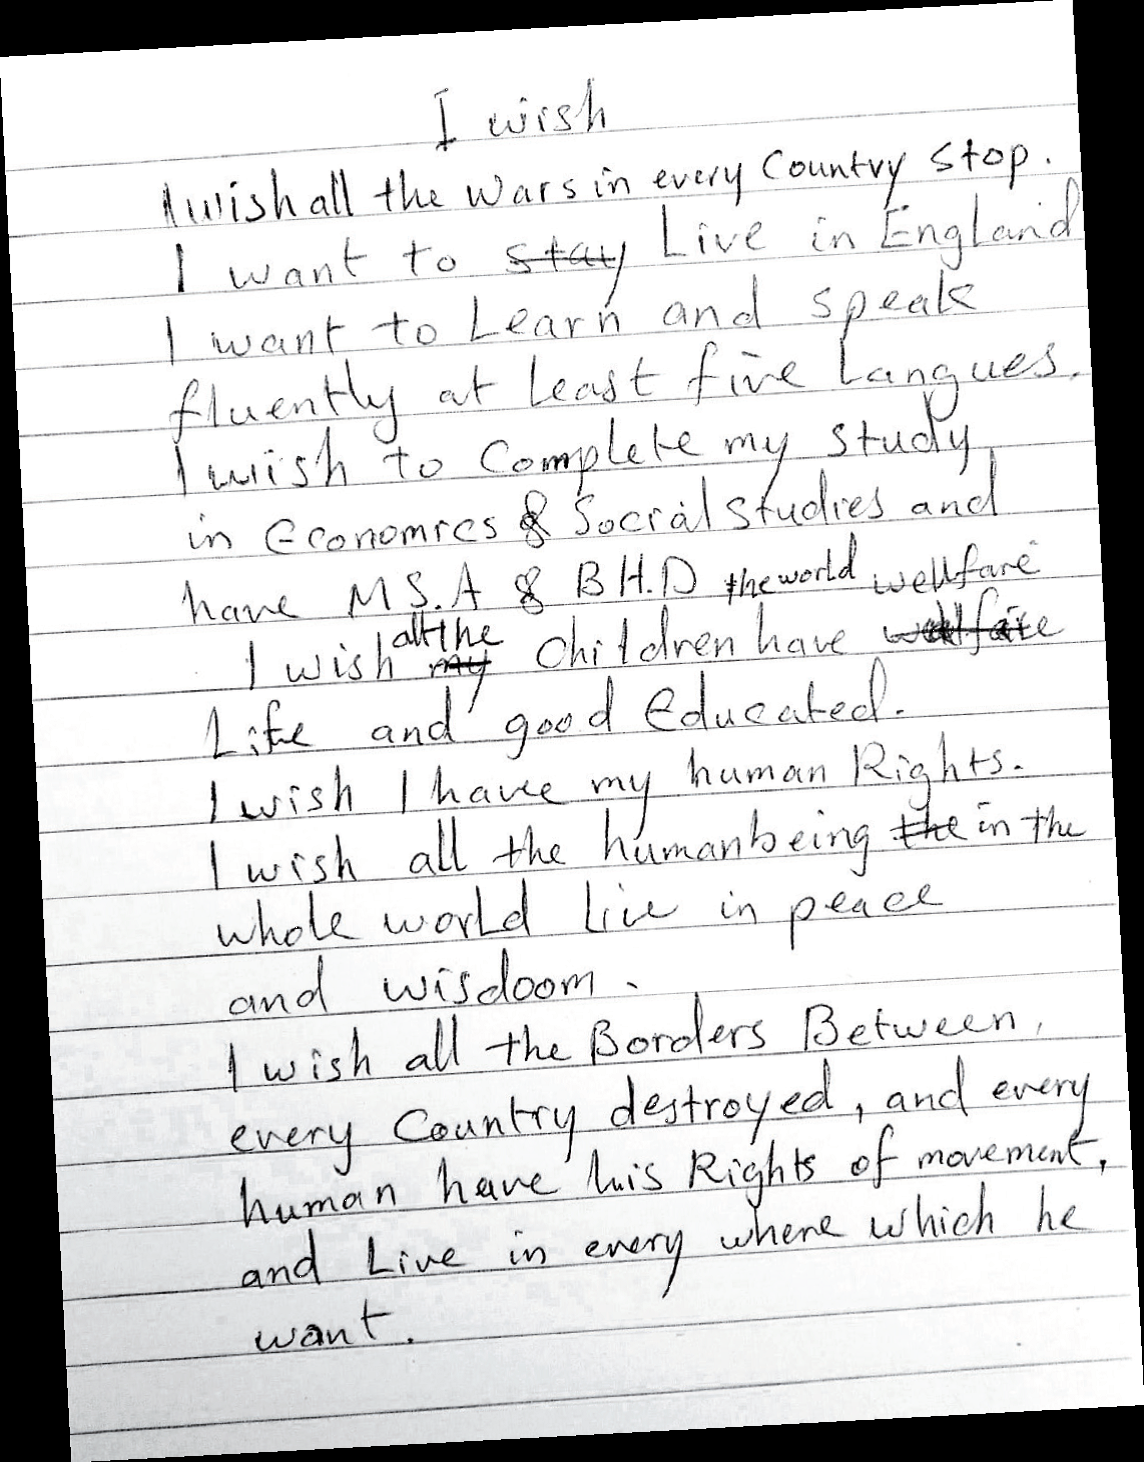 I wish
I wish all the wars in every Country stop.
I want to stay Live in England
I want to Learn and speak
fluently at Least five Langues.
I wish to Complete my study
in Economics & Social studies and
have M S.A & B H.D the world wellfare
all the
I wish my Children have wellfare
Life and good Educated.
I wish I have my human Rights.
I wish all the humanbeing the in the
whole world Live in peace
and wisdoom.
I wish all the Borders Between,
every Country destroyed, and every
human have his Rights of movement,
and Live in every where which he
want.